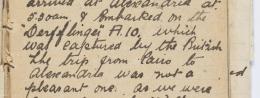 arrived at Alexandria at
5.30am & Embarked on the
"Derfflinger" A.10, which
was captured by the British
The trip from Cairo to
Alexandria was not a
pleasant one. as we were